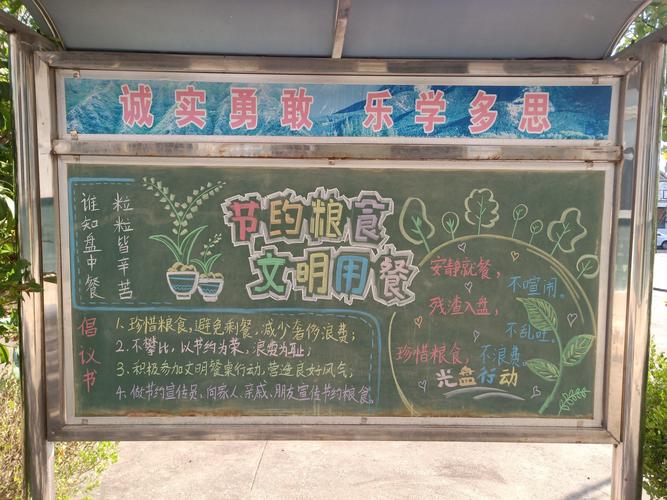 诚实勇敢 乐学多思
谁知盘中餐
粒粒皆辛苦
节约粮食
文明用餐
倡议书
1.珍惜粮食,避免剩餐,减少奢侈浪费;
2.不攀比,以节约为荣,浪费为耻;
3.积极参加文明餐桌行动,营造良好风气;
4.做节约宣传员,向家人、亲戚、朋友宣传节约粮食。
安静就餐,不喧闹。
残渣入盘,不乱吐。
珍惜粮食,不浪费。
光盘行动